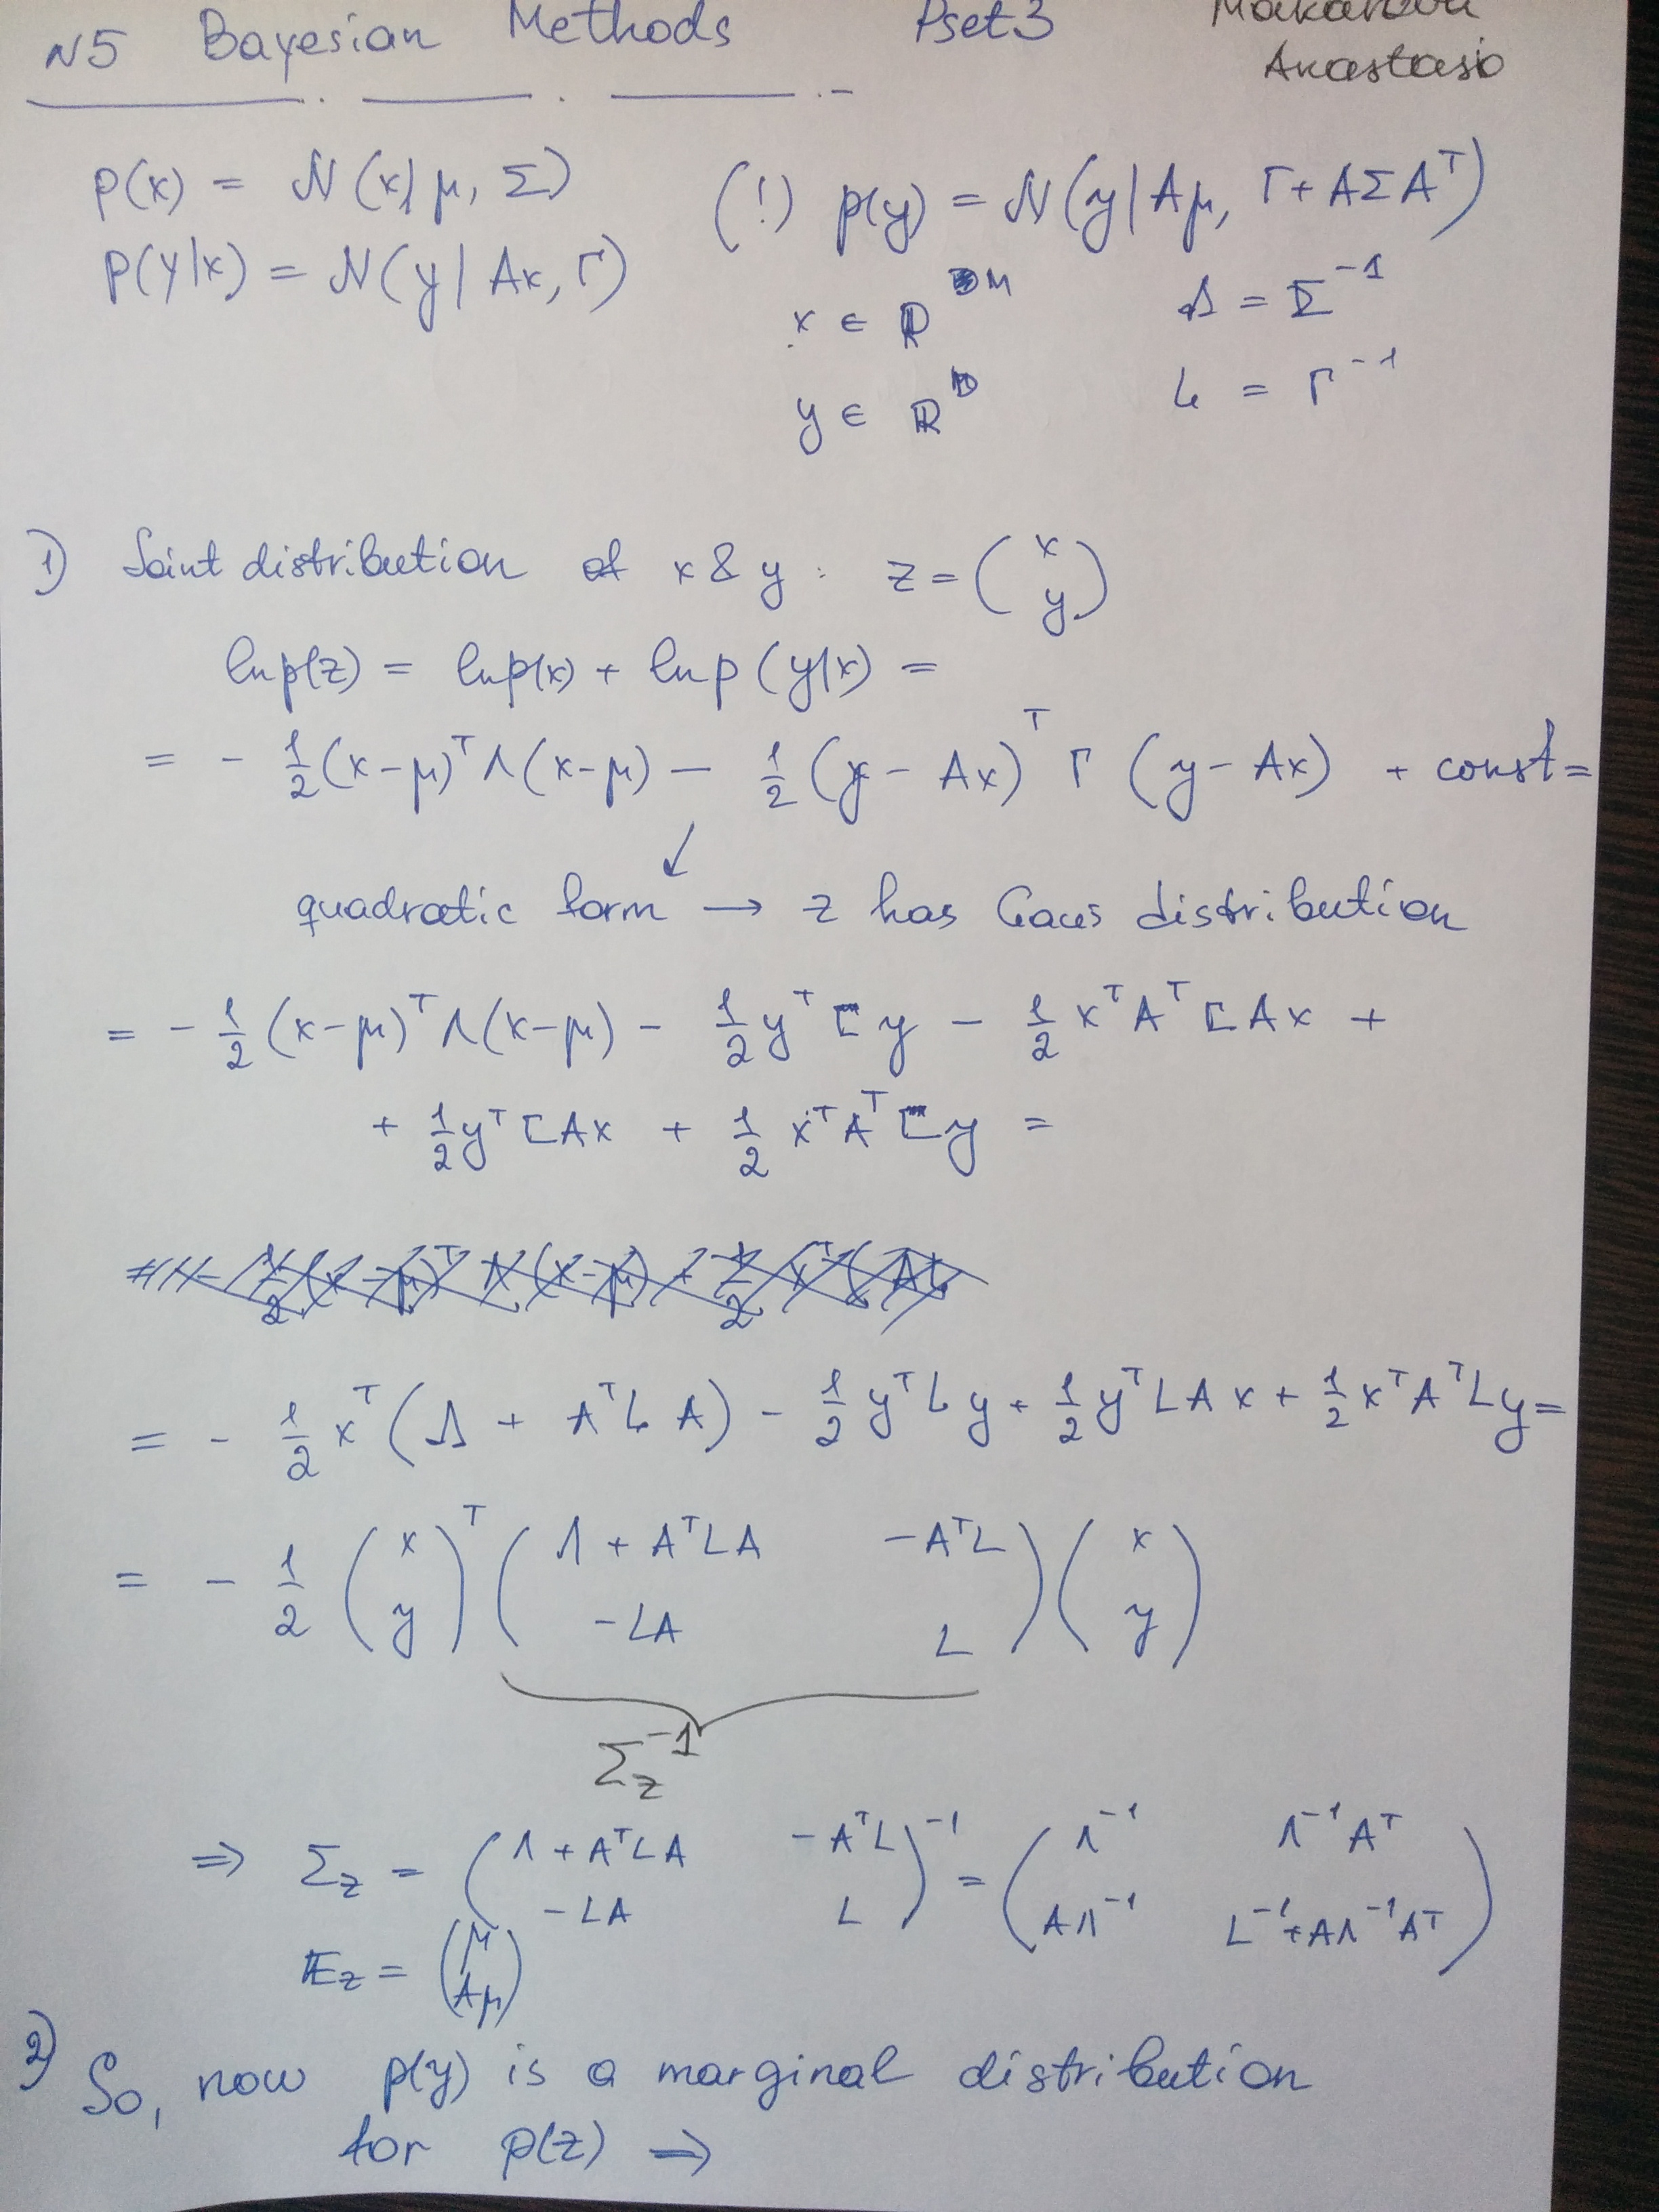 N5 Bayesian Methods Pset3
Anastasia
p(x) = N(x|μ, Σ) (!) p(y) = N(y|Aμ, Γ+AΣA^T)
p(y|x) = N(y|Ax, Γ)
x ∈ R^M Λ = Σ^{-1}
y ∈ R^D L = Γ^{-1}
1) Joint distribution of x & y : z = (x y)
ln p(z) = ln p(x) + ln p(y|x) =
= - 1/2 (x-μ)^T Λ(x-μ) - 1/2 (y - Ax)^T Γ (y - Ax) + const =
quadratic form → z has Gaus distribution
= - 1/2 (x-μ)^T Λ(x-μ) - 1/2 y^T L y - 1/2 x^T A^T L A x +
+ 1/2 y^T L A x + 1/2 x^T A^T L y =
= - 1/2 x^T (Λ + A^T L A) - 1/2 y^T L y + 1/2 y^T L A x + 1/2 x^T A^T L y =
= - 1/2 (x y)^T (Λ + A^T L A -A^T L -LA L) (x y)
Σ_z^{-1}
⇒ Σ_z = (Λ + A^T L A -A^T L -LA L)^{-1} = (Λ^{-1} Λ^{-1}A^T AΛ^{-1} L^{-1}+AΛ^{-1}A^T)
E_z = (μ Aμ)
2) So, now p(y) is a marginal distribution
for p(z) ⇒